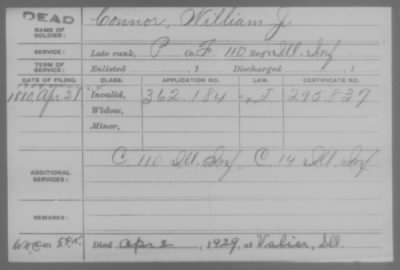 DEAD
NAME OF SOLDIER: Connor, William J.
SERVICE: Late rank, P Co F 110 Reg't Ill. Inf
TERM OF SERVICE: Enlisted , 1 Discharged , 1
DATE OF FILING. CLASS. APPLICATION NO. LAW. CERTIFICATE NO.
1880 Apr 21 Invalid, 362.184 J 295.837
Widow,
Minor,
ADDITIONAL SERVICES: C. 110 Ill. Inf. C. 14 Ill. Inf
REMARKS:
Died Apr 2, 1929, at Valier, Ill.